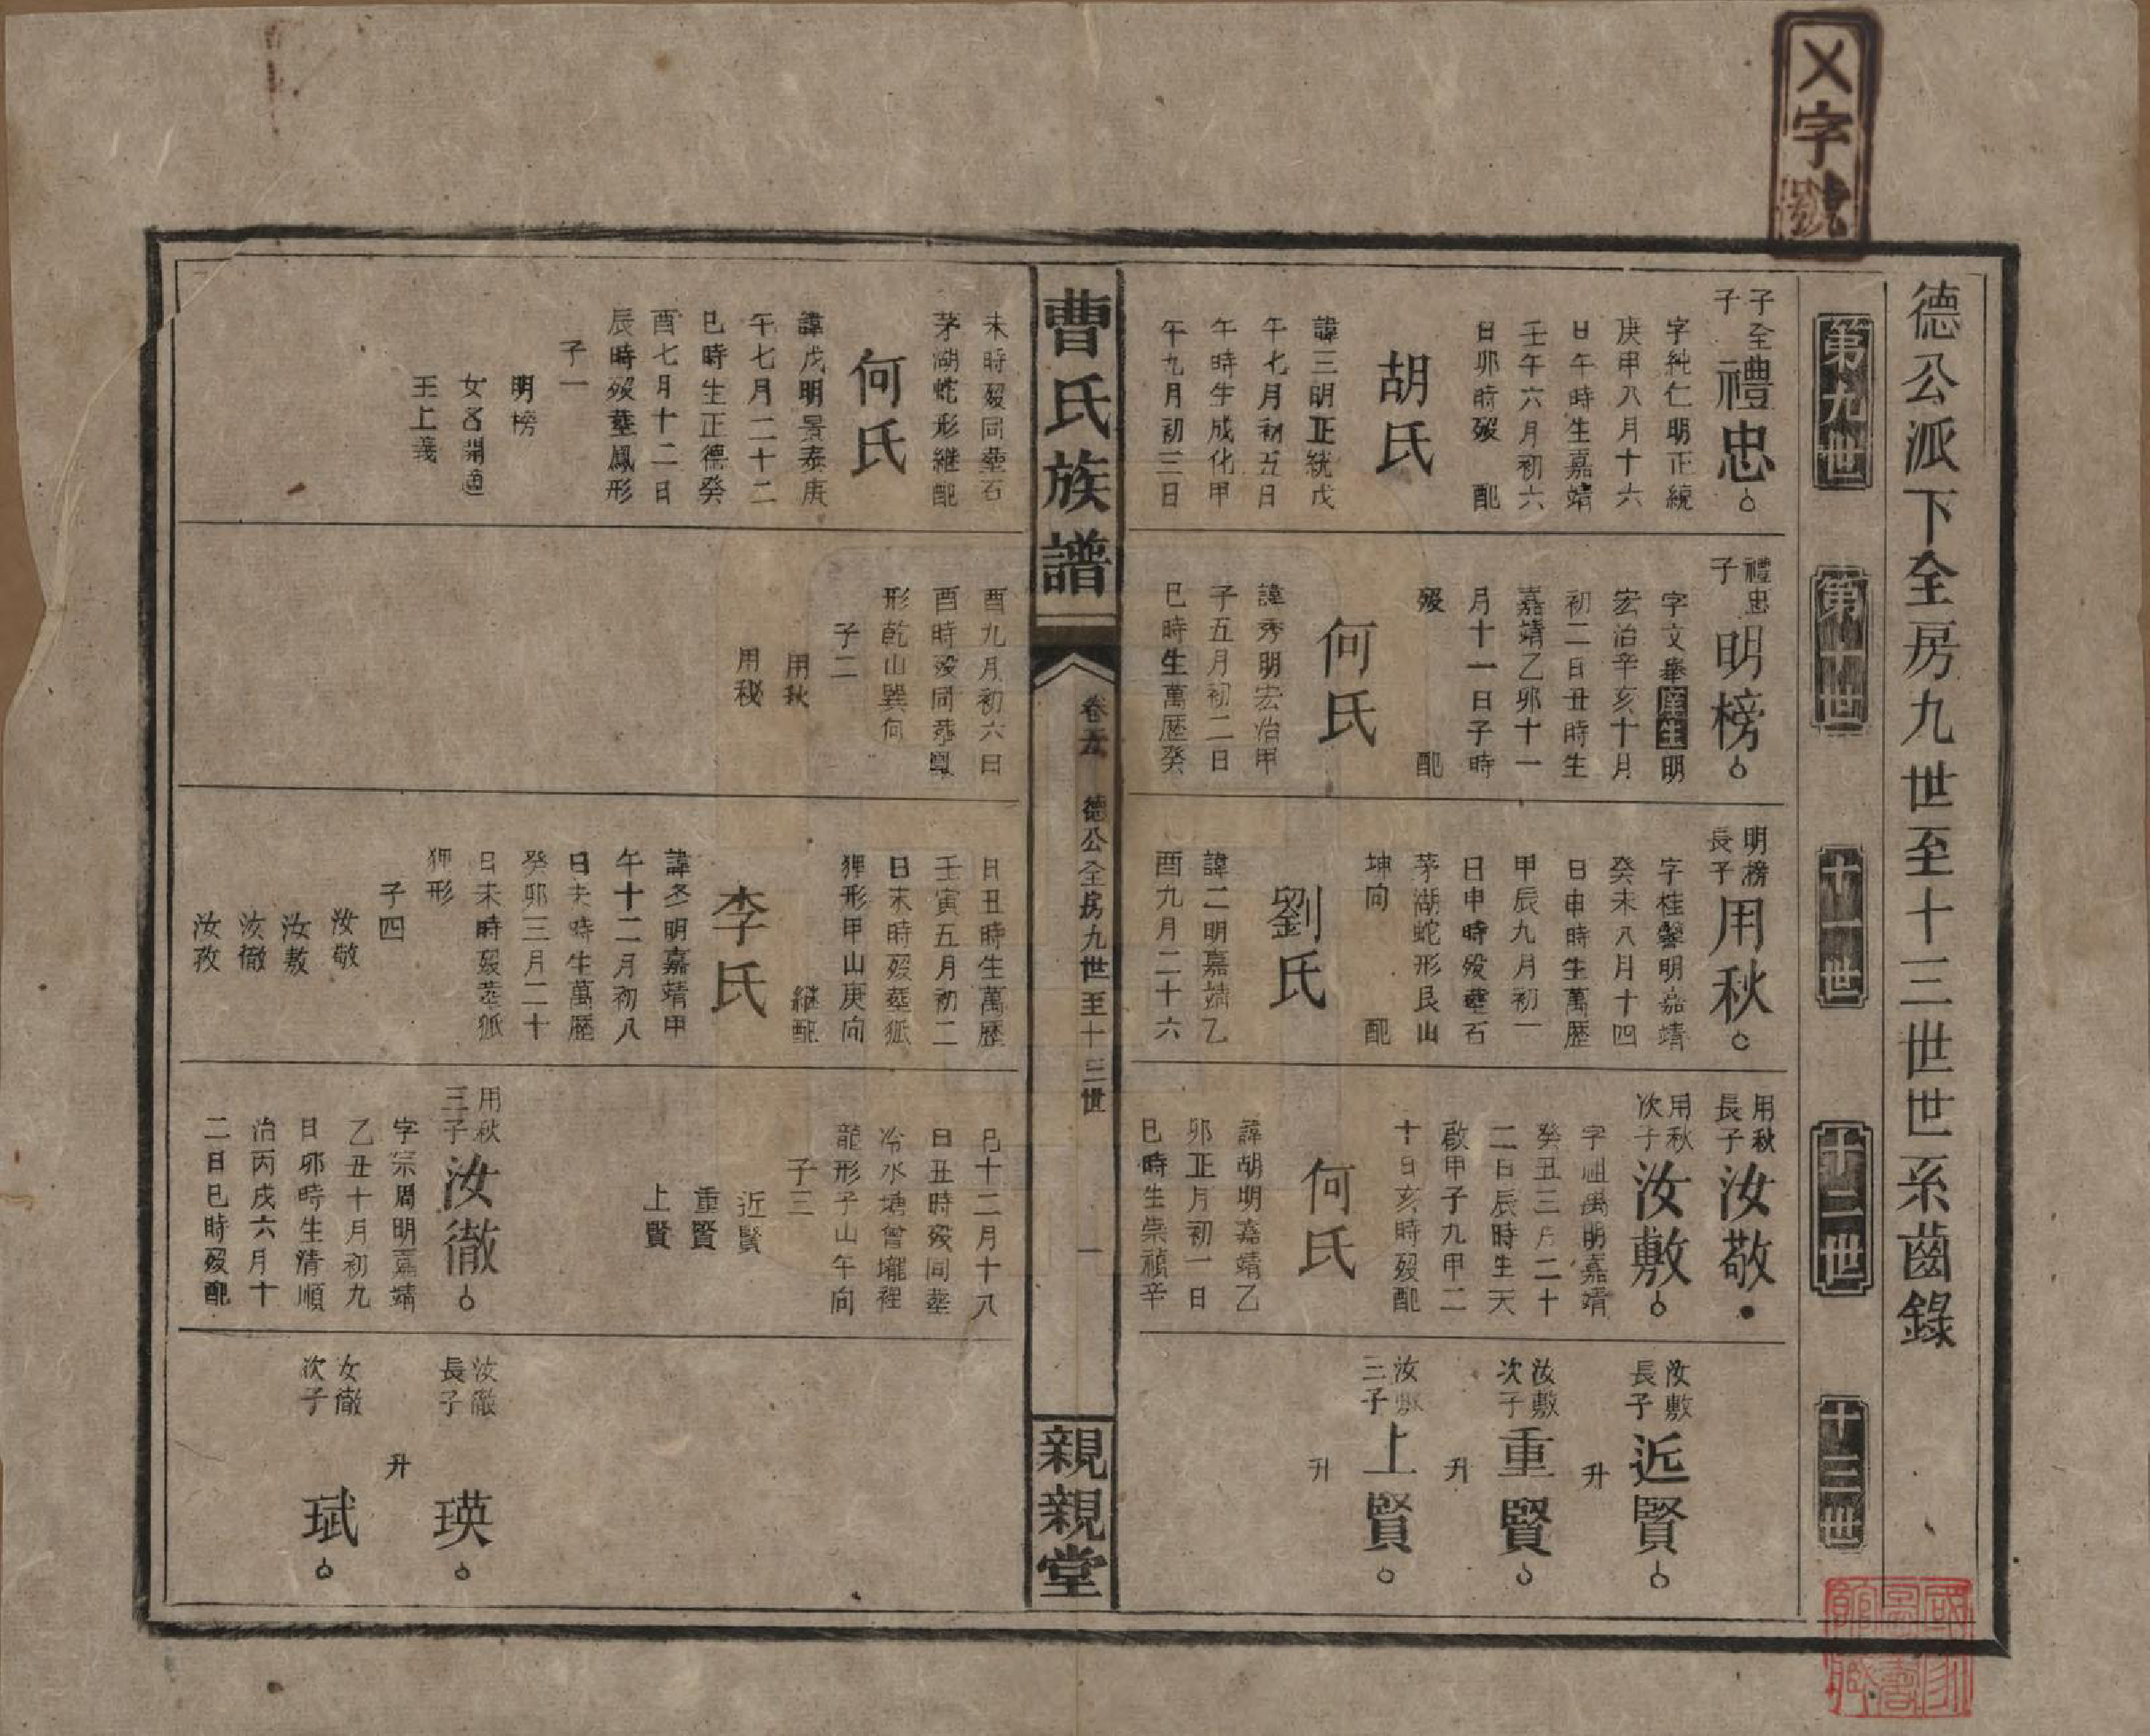 乂字號
德公派下全房九世至十三世世系齒錄
第九世
第十世
十一世
十二世
十三世
子全
子
禮忠
字純仁明正統
庚申八月十六
日午時生嘉靖
壬午六月初六
日卯時歿 配
胡氏
諱三明正統戊
午七月初五日
午時生成化甲
午九月初三日
未時歿同塟石
茅湖蛇形継配
何氏
諱戊明景泰庚
午七月二十二
巳時生正德癸
酉七月十二日
辰時歿塟鳳形
子一
明榜
女名閏適
王上義
禮忠
子
明榜
字文舉庠生明
宏治辛亥十月
初二日丑時生
嘉靖乙卯十一
月十一日子時
歿 配
何氏
諱秀明宏治甲
子五月初二日
巳時生萬歷癸
酉九月初六日
酉時歿同塟鳳
形乾山巽向
子二
用秋
用秘
明榜
長子
用秋
字桂馨明嘉靖
癸未八月十四
日申時生萬歷
甲辰九月初一
日申時歿塟石
茅湖蛇形艮山
坤向 配
劉氏
諱二明嘉靖乙
酉九月二十六
日丑時生萬歷
壬寅五月初二
日未時歿塟狐
狸形甲山庚向
継配
李氏
諱冬明嘉靖甲
午十二月初八
日未時生萬歷
癸卯三月二十
日未時歿塟狐
狸形
子四
汝敬
汝敷
汝徹
汝孜
用秋
長子
汝敬
用秋
次子
汝敷
字祖禹明嘉靖
癸丑三月二十
二日辰時生天
啟甲子九甲二
十日亥時歿配
何氏
諱胡明嘉靖乙
卯正月初一日
巳時生崇禎辛
巳十二月十八
日丑時歿同塟
冷水塘曾壠裡
龍形子山午向
子三
近賢
重賢
上賢
用秋
三子
汝徹
字宗周明嘉靖
乙丑十月初九
日卯時生清順
治丙戌六月十
二日巳時歿配
汝敷
長子
近賢
升
汝敷
次子
重賢
升
汝敷
三子
上賢
升
汝徹
長子
瑛
升
女徹
次子
珷
曹氏族譜
卷五
德公全房九世至十三世
一
親親堂